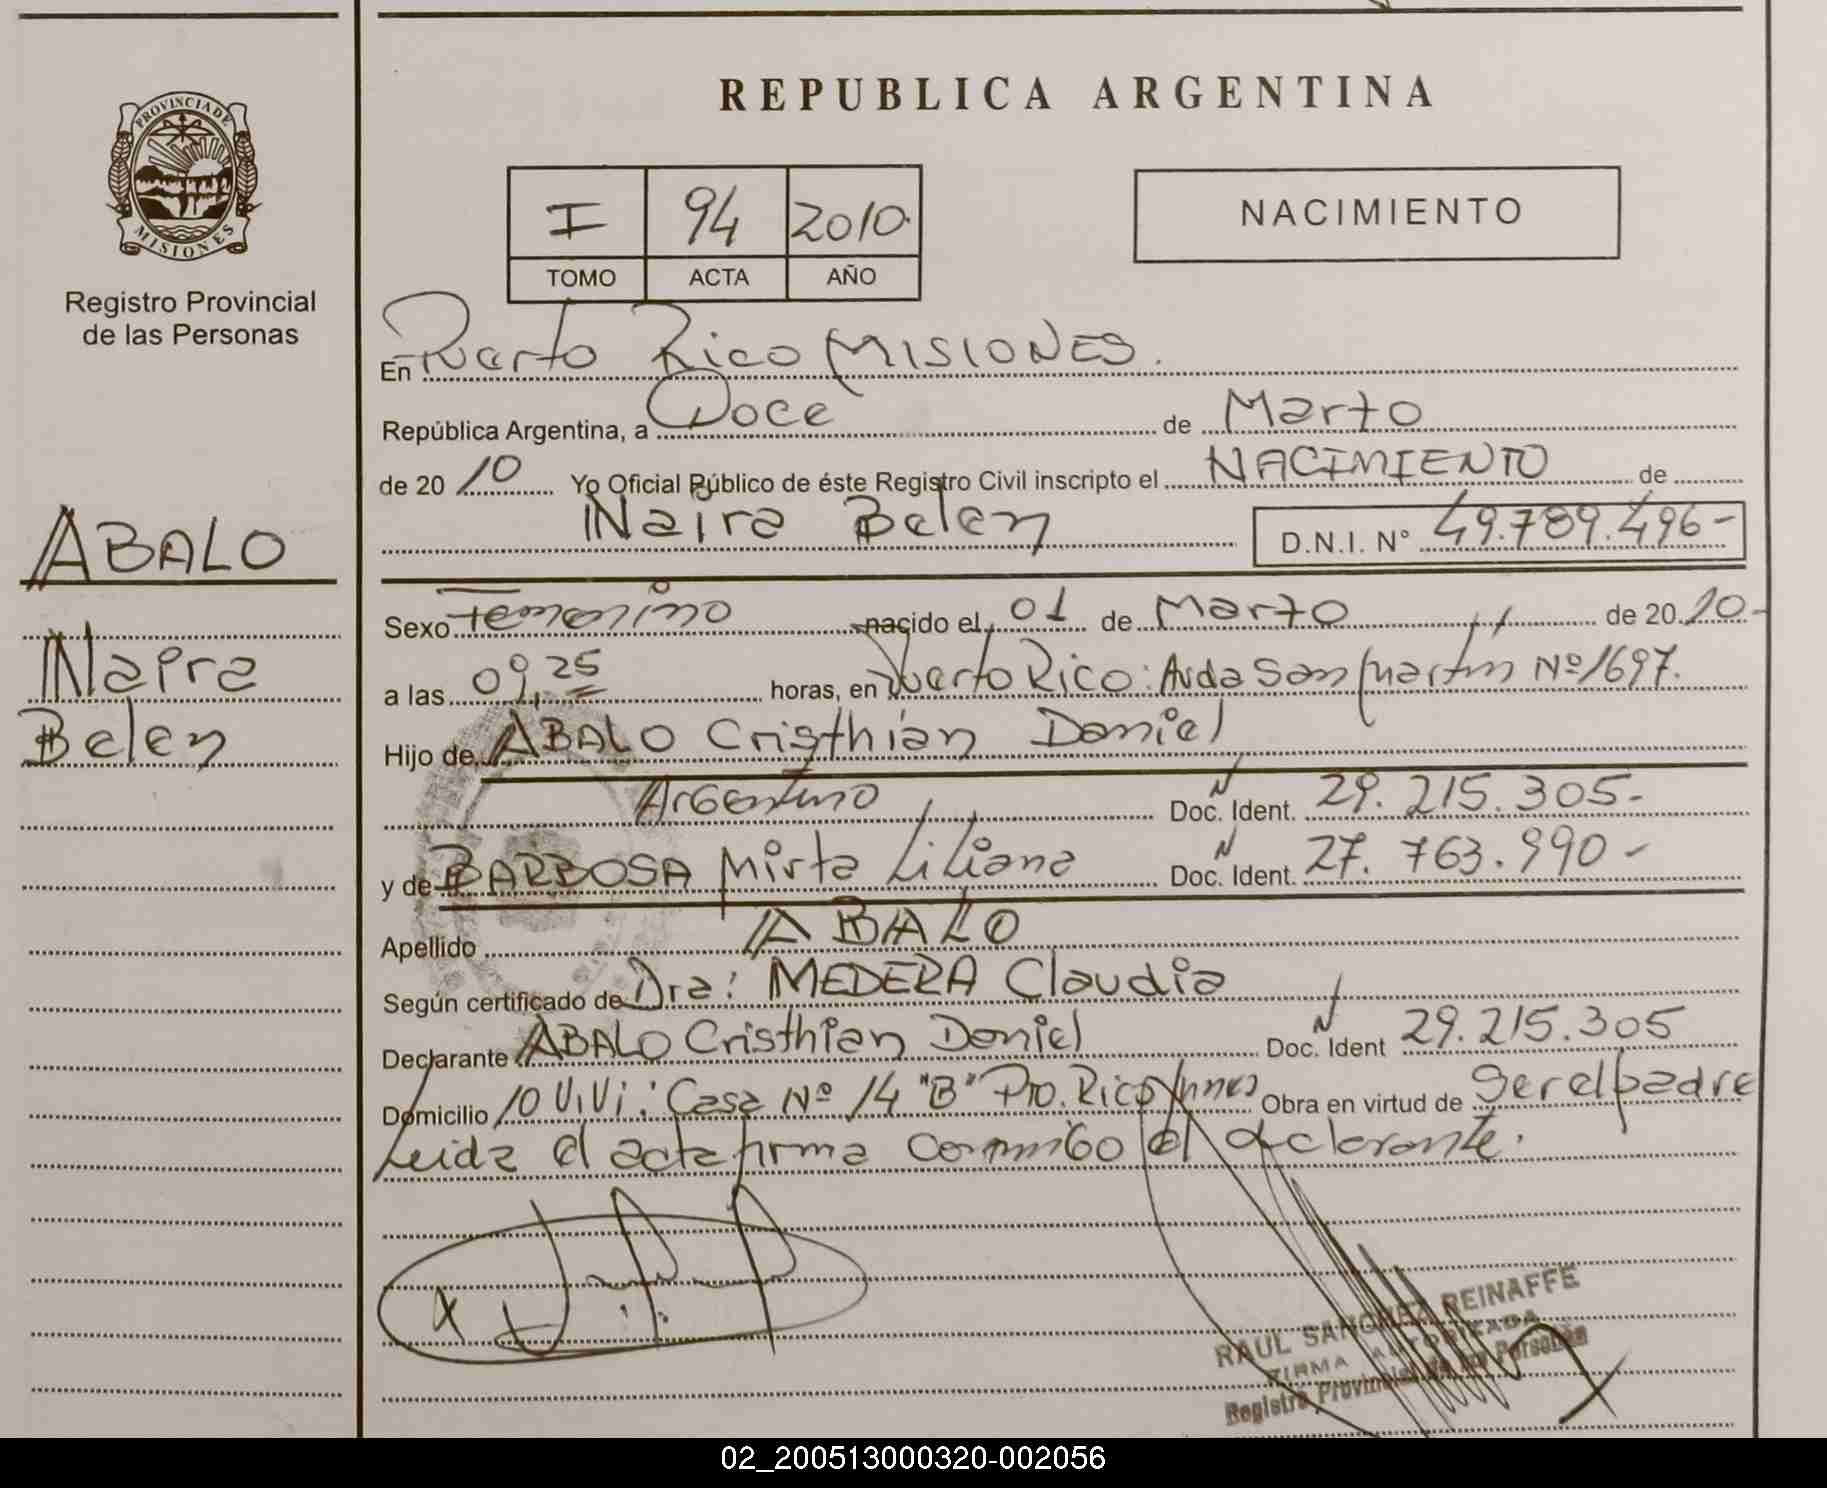 REPUBLICA ARGENTINA
PROVINCIA DE
MISIONES
Registro Provincial
de las Personas
I 94 2010
TOMO ACTA AÑO
NACIMIENTO
En Puerto Rico MISIONES.
República Argentina, a Doce de Marzo
de 20 10 Yo Oficial Público de éste Registro Civil inscripto el NACIMIENTO de
Naira Belen D.N.I. N° 49.789.496-
ABALO
Naira
Belen
Sexo Femenino nacido el 01 de Marzo de 20 10-
a las 09,25 horas, en Puerto Rico: Avda San Martin Nº 1697.
Hijo de ABALO Cristhian Daniel
Argentino Doc. Ident. 29.215.305-
y de BARBOSA Mirta Liliana Doc. Ident. 27.763.990-
Apellido ABALO
Según certificado de Dra: MEDERA Claudia
Declarante ABALO Cristhian Daniel Doc. Ident 29.215.305
Domicilio 10 ViVi: Casa Nº 14 "B" Pto. Rico Mnes Obra en virtud de ser el padre
Leida el acta firma conmigo el declarante.
RAUL SANCHEZ REINAFFE
FIRMA AUTORIZADA
Registro Provincial de las Personas
02_200513000320-002056